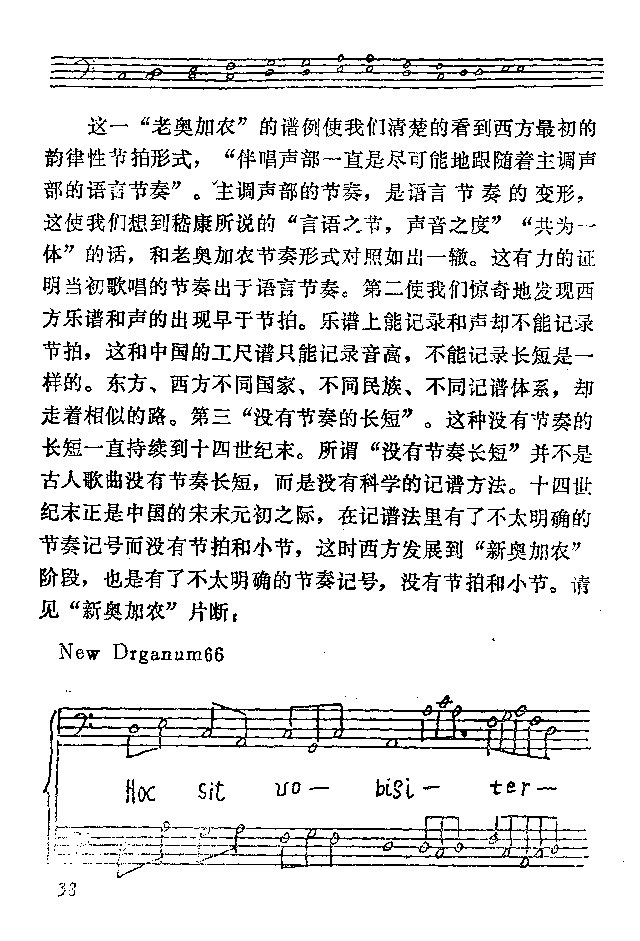 这一“老奥加农”的谱例使我们清楚的看到西方最初的
韵律性节拍形式，“伴唱声部一直是尽可能地跟随着主调声
部的语言节奏”。主调声部的节奏，是语言节奏的变形，
这使我们想到嵇康所说的“言语之节，声音之度”“共为一
体”的话，和老奥加农节奏形式对照如出一辙。这有力的证
明当初歌唱的节奏出于语言节奏。第二使我们惊奇地发现西
方乐谱和声的出现早于节拍。乐谱上能记录和声却不能记录
节拍，这和中国的工尺谱只能记录音高，不能记录长短是一
样的。东方、西方不同国家、不同民族、不同记谱体系，却
走着相似的路。第三“没有节奏的长短”。这种没有节奏的
长短一直持续到十四世纪末。所谓“没有节奏长短”并不是
古人歌曲没有节奏长短，而是没有科学的记谱方法。十四世
纪末正是中国的宋末元初之际，在记谱法里有了不太明确的
节奏记号而没有节拍和小节，这时西方发展到“新奥加农”
阶段，也是有了不太明确的节奏记号，没有节拍和小节。请
见“新奥加农”片断：
New Drganum66
Hoc sit vo— bisi— ter—
38